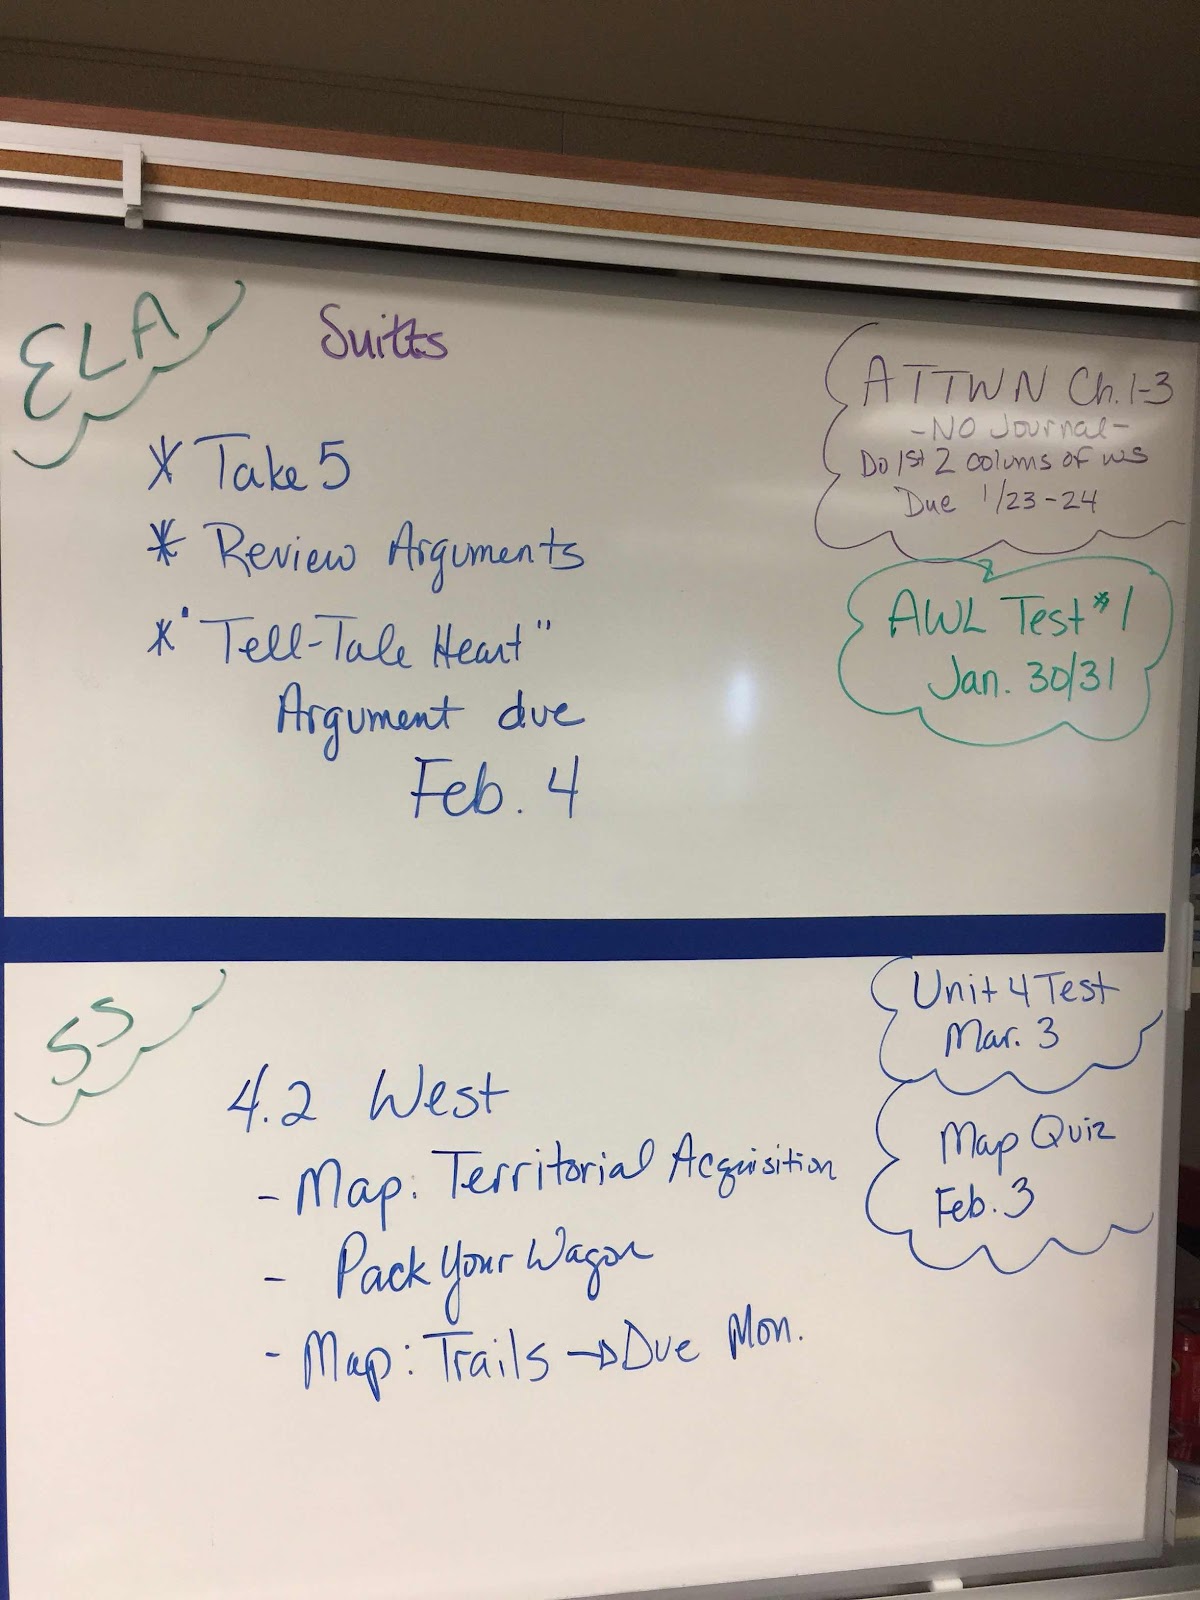 ELA
Suitts
* Take 5
* Review Arguments
* "Tell-Tale Heart"
Argument due
Feb. 4
ATTWN Ch. 1-3
-NO Journal-
Do 1st 2 colums of ws
Due 1/23-24
AWL Test #1
Jan. 30/31
SS
4.2 West
- Map: Territorial Acquisition
- Pack Your Wagon
- Map: Trails → Due Mon.
Unit 4 Test
Mar. 3
Map Quiz
Feb. 3